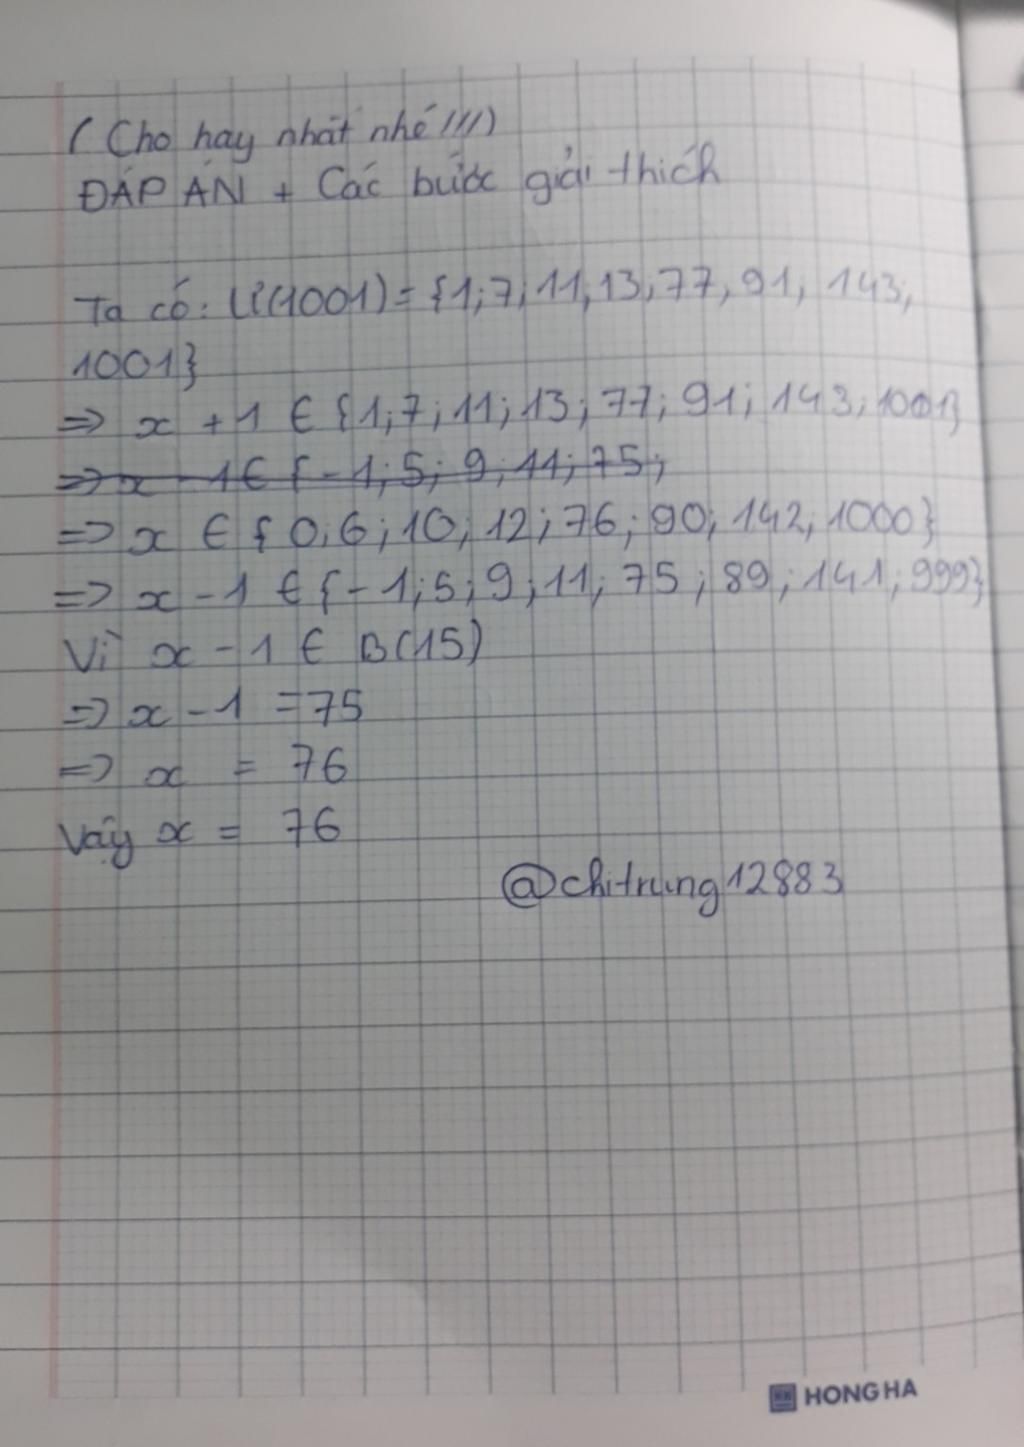 ( Cho hay nhất nhé !!!)
ĐÁP ÁN + Các bước giải thích
Ta có: Ư(1001) = {1; 7; 11; 13; 77; 91; 143;
1001}
=> x + 1 ∈ {1; 7; 11; 13; 77; 91; 143; 1001}
=> x - 1 ∈ { - 1; 5; 9; 11; 75;
=> x ∈ { 0; 6; 10; 12; 76; 90; 142; 1000}
=> x - 1 ∈ { - 1; 5; 9; 11; 75; 89; 141; 999}
Vì x - 1 ∈ B(15)
=> x - 1 = 75
=> x = 76
Vậy x = 76
@chitrung12883
HONG HA